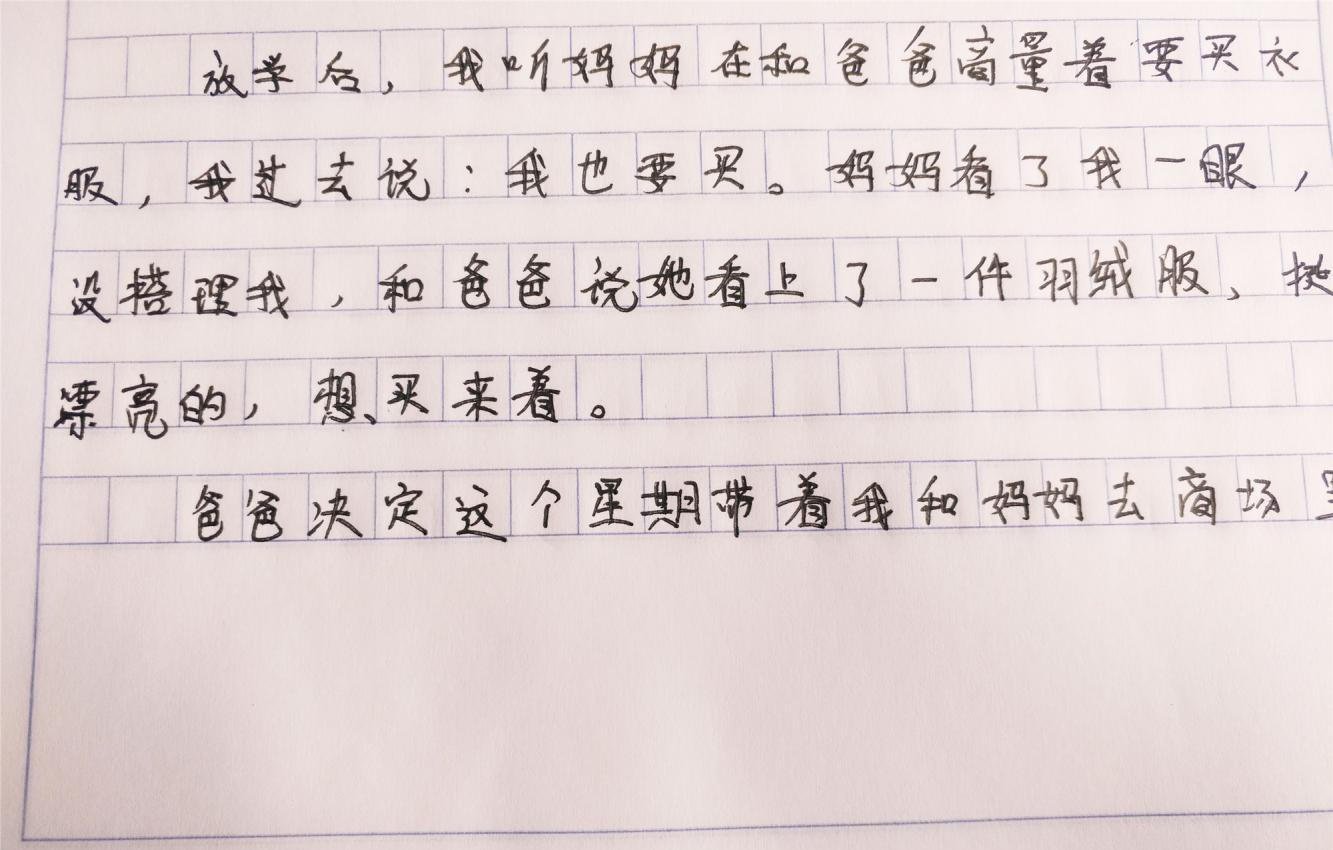 放学后，我听妈妈在和爸爸商量着要买衣
服，我过去说：我也要买。妈妈看了我一眼，
没搭理我，和爸爸说她看上了一件羽绒服、挺
漂亮的，想买来着。
爸爸决定这个星期带着我和妈妈去商场